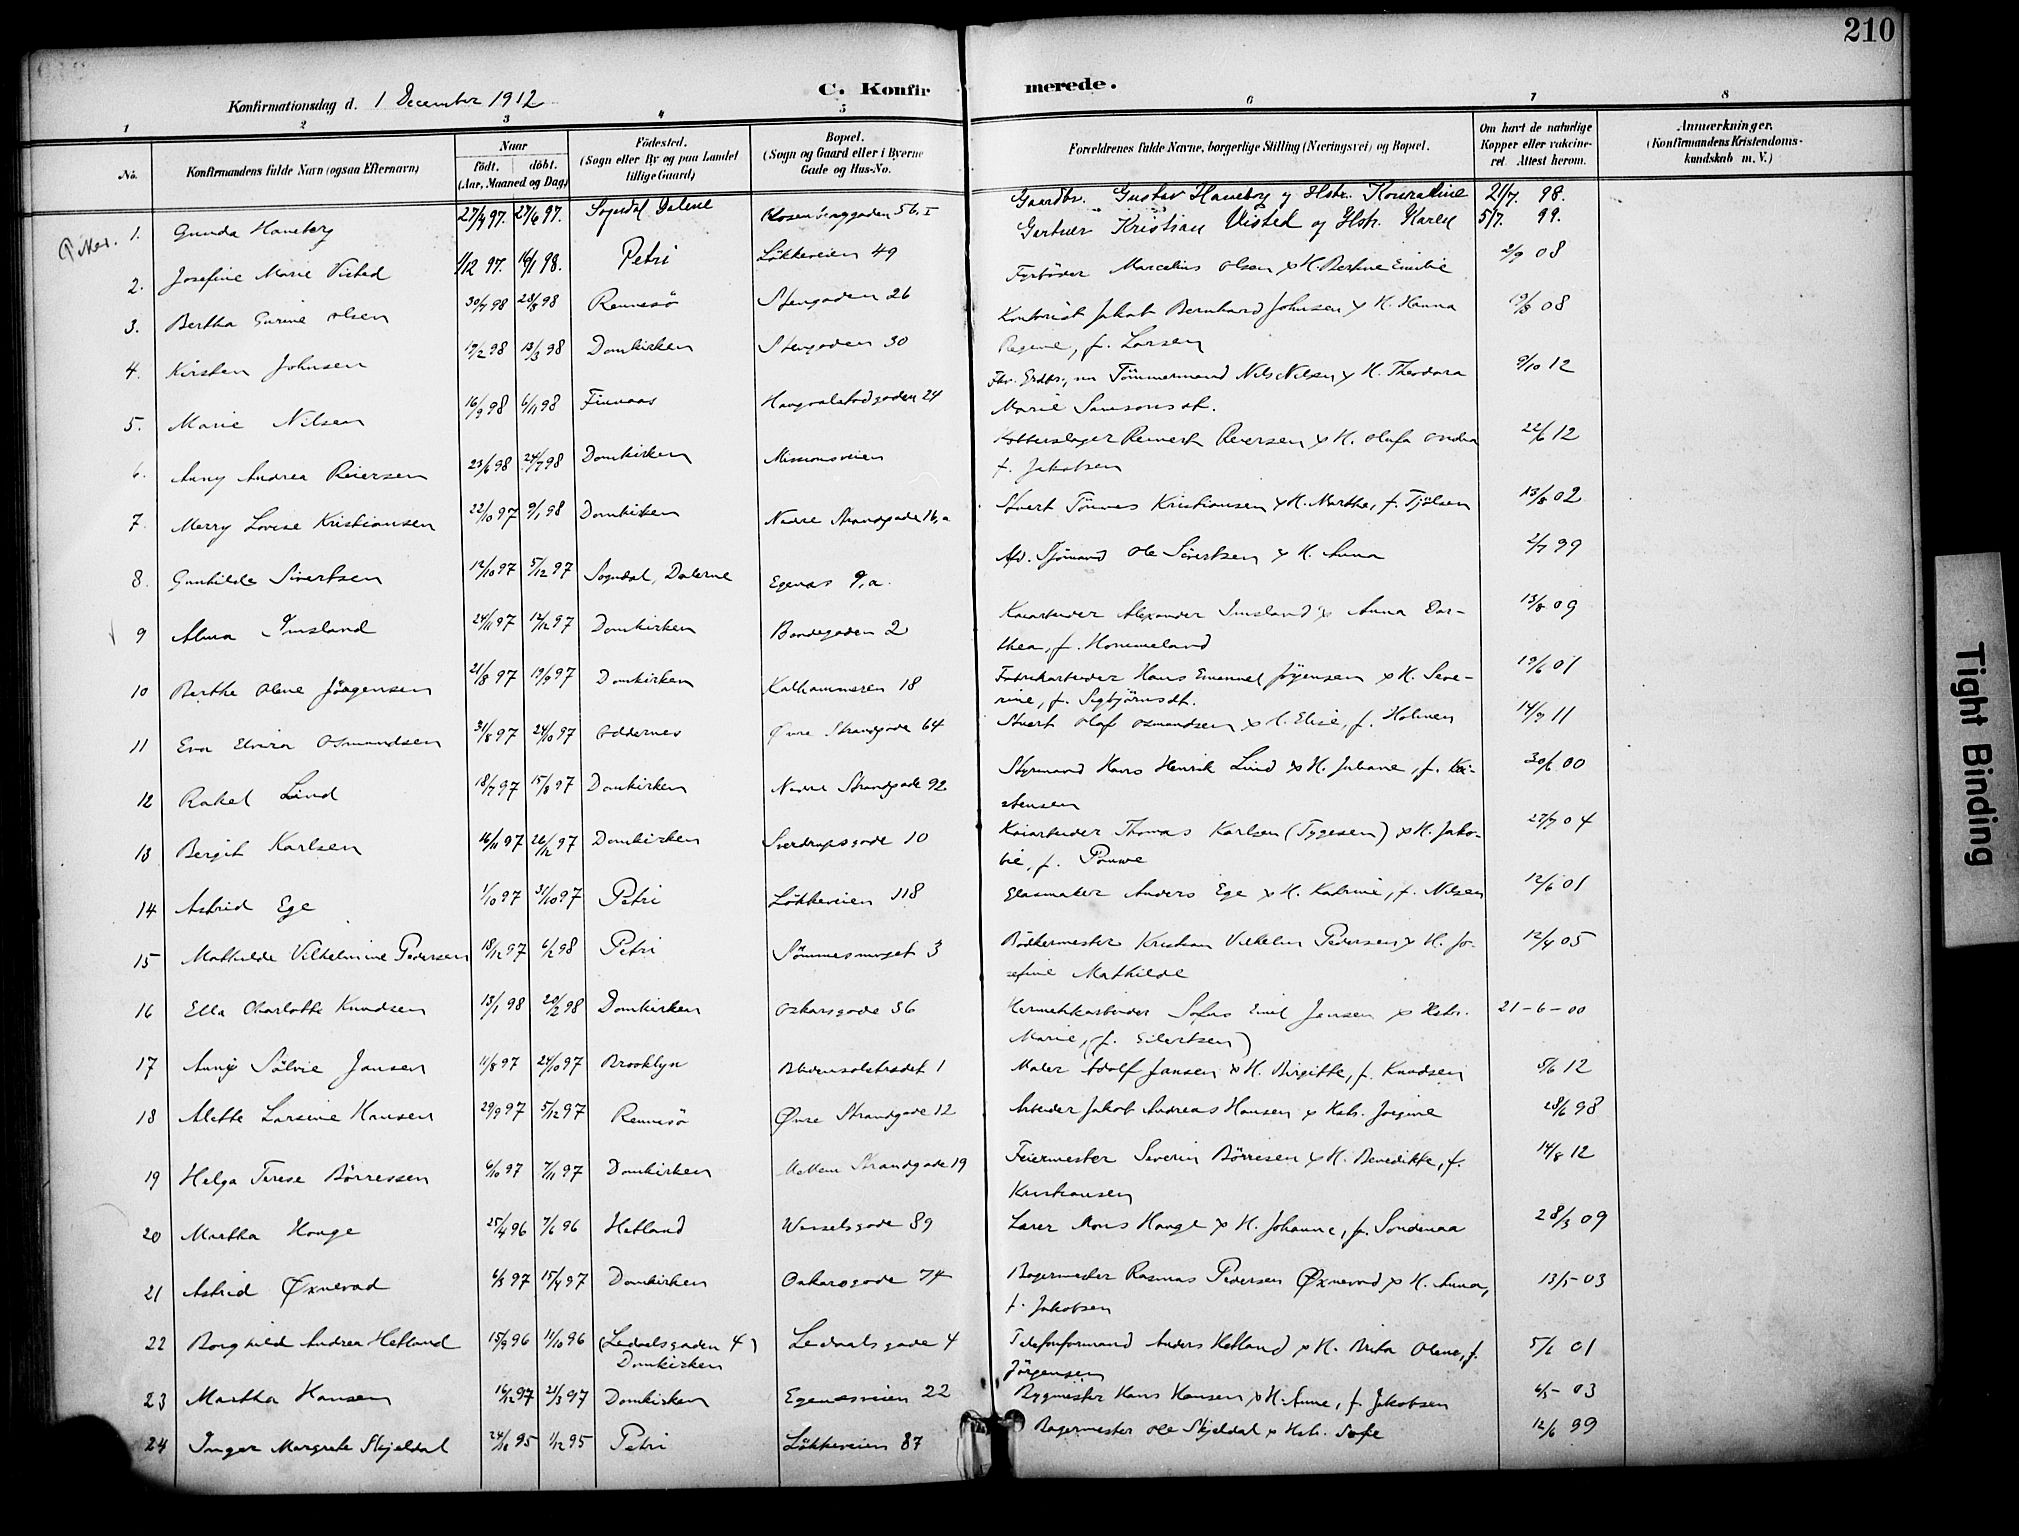 210
C. Konfirmerede.
Konfirmationsdag d. 1 December 1912
1 2 3 4 5 6 7 8
No.
Konfirmandens fulde Navn (ogsaa Efternavn)
Naar
født. døbt.
(Aar, Maaned og Dag)
Fødested.
(Sogn eller By og paa Landet
tillige Gaard)
Bopæl.
(Sogn og Gaard eller i Byerne
Gade og Hus-No.
Forældrenes fulde Navne, borgerlige Stilling (Næringsvei) og Bopæl.
Om havt de naturlige
Kopper eller vakcine-
ret. Attest herom.
Anmærkninger.
(Konfirmandens Kristendoms-
kundskab m. V.)
Piker.
1. Gunda Haneberg 27/4 97. 27/6 97. Sogndal Dalene Rosenberggaden 56. I Gaardbr. Gustav Haneberg og Hstr. Konradine 21/7 98.
2. Josefine Marie Visted 1/12 97. 16/1 98. Petri Løkkeveien 49 Gartner Kristian Visted og Hstr. Karen 5/7. 99.
3. Bertha Gurine Olsen 30/7 98 28/8 98 Rennesø Stengaden 26 Fyrbøder Marcelius Olsen & H. Bertine Emilie 2/9 08
4. Kirsten Johnsen 19/2 98 13/3 98 Domkirken Stengaden 30 Kontorist Jakob Bernhard Johnsen & H. Hanna
Regine, f. Larsen
5. Marie Nilsen 16/9 98 6/11 98 Finnaas Haugvaldstadgaden 24 Tømmermand Nils Nilsen & H. Theodora 9/10 12
Marie Samsonsdt.
6. Anny Andrea Reiersen 23/6 98 24/7 98 Domkirken Missionsveien Kobberslager Reinert Reiersen & H. Olufa Andrea 22/6 12
f. Jakobsen
7. Merry Lovise Kristiansen 22/10 97 9/1 98 Domkirken Nedre Strandgade 16,a Stuert Tønnes Kristiansen & H. Marthe, f. Tjølsen 13/8 02
8. Gunhilde Sivertsen 12/10 97 5/12 97 Sogndal, Dalerne Egenæs 9,a. Afd. Sjømand Ole Sivertsen & H. Anna 2/7 99
9 Alma Imsland 24/11 97 19/12 97 Domkirken Bandegaden 2 Kaiarbeider Alexander Imsland & Anna Dor-
thea, f. Hommeland 13/8 09
10 Berthe Oline Jørgensen 21/8 97 19/9 97 Domkirken Kalhammeren 18 Fabrikarbeider Hans Emanuel Jørgensen & H. Seve- 19/6 01
rine, f. Sigbjørnsdt.
11 Eva Elvira Osmundsen 31/8 97 24/10 97 Oddernes Øvre Strandgade 64 Stuert Olaf Osmundsen & H. Elise, f. Holmen 14/9 11
12 Rakel Lind 18/7 97 15/8 97 Domkirken Nedre Strandgade 92 Styrmand Hans Henrik Lind & H. Juliane, f. Kri- 30/6 00
stensen
13 Bergit Karlsen 16/11 97 26/12 97 Domkirken Sverdrupsgade 10 Kaiarbeider Thomas Karlsen (Tygesen) & H. Jako- 27/7 04
bie, f.
14 Astrid Ege 1/10 97 31/10 97 Petri Løkkeveien 118 Glasmaker Anders Ege & H. Katrine, f. Nilsen 12/6 01
15 Mathilde Vilhelmine Pedersen 18/12 97 6/2 98 Petri Sømmesmuget 3 Bødkermester Kristian Vilhelm Pedersen & H. Jo- 12/4 05
sefine Mathilde
16 Ella Charlotte Knudsen 13/1 98 20/2 98 Domkirken Oskarsgade 36 Hermetikarbeider Sofus Emil Jensen & Hstr. 21-6-00
Marie, (f. Eilertsen)
17 Anny Sølvie Jansen 11/8 97 24/10 97 Brooklyn Blidensolstrædet 1 Maler Adolf Jansen & H. Birgitte, f. Knudsen 5/6 12
18 Mette Larsine Hansen 29/9 97 5/12 97 Rennesø Øvre Strandgade 12 Arbeider Jakob Andreas Hansen & Hstr. Jorgine 28/6 98
19 Helga Terese Børresen 6/10 97 7/11 97 Domkirken Mellem Strandgade 19 Feiermester Severin Børresen & H. Benedikte, f. 14/8 12
Kristiansen
20 Martha Hauge 25/4 96 7/6 96 Hetland Wesselsgade 89 Lærer Mons Hauge & H. Johanne, f. Søndenaa 28/3 09
21 Astrid Øxnevad 6/3 97 15/4 97 Domkirken Oskarsgade 74 Bagermester Rasmus Pedersen Øxnevad & H. Anna, 13/5-03
f. Jakobsen
22 Borghild Andrea Hetland 15/9 96 11/10 96 (Ledaalsgaden 4)
Domkirken Ledaalsgade 4 Telefonformand Anders Hetland & H. Brita Oline, f. 5/6 01
Jørgensen
23 Martha Hansen 16/12 97 21/3 97 Domkirken Egenesveien 22 Bygmester Hans Hansen & H. Anne, f. Jakobsen 6/5-03
24 Inger Margrete Skjeldal 24/10 95 1/12 95 Petri Løkkeveien 87 Bagermester Ole Skjeldal & Hstr. Sofie 12/6 99
Tight Binding